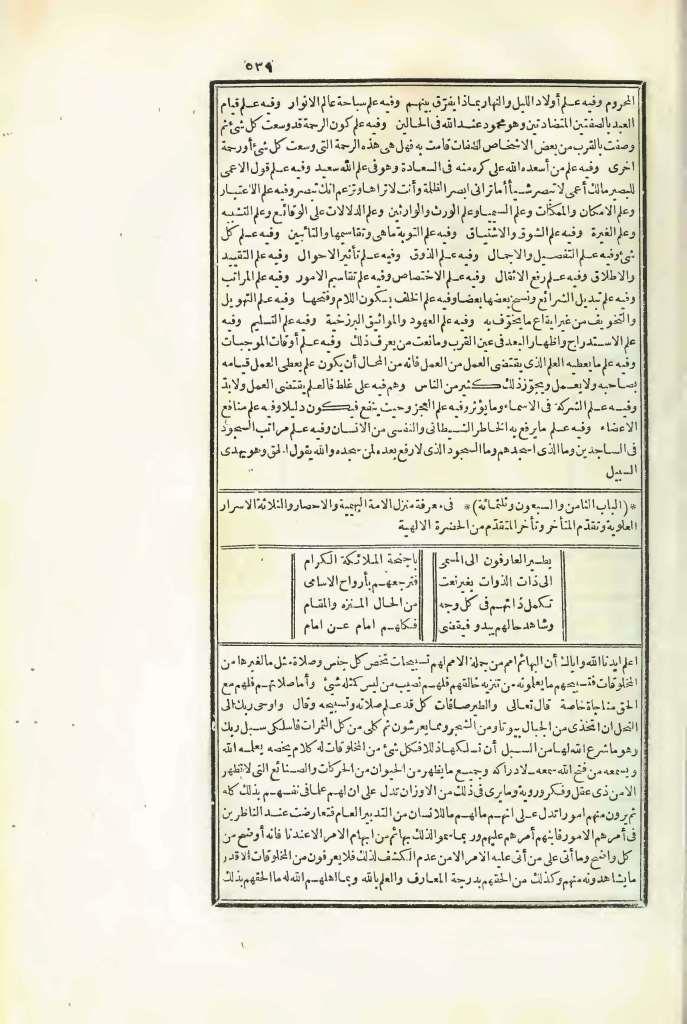 ٥٣٩
المحروم وفيه علم أولاد الليل والنهار بماذا يفرق بينهم وفيه علم سباحة عالم الانوار وفيه علم قيام
العبد بالصفتين المتضادتين وهو محمود عند الله فى الحالين وفيه علم كون الرحمة قد وسعت كل شئ ثم
وصفت بالقرب من بعض الاشخاص لصفات قامت به فهل هى هذه الرحمة التى وسعت كل شئ أو رحمة
اخرى وفيه علم من أسعده الله على كره منه فى السعادة وهو فى علم الله سعيد وفيه علم قول الاعمى
للبصير مالك أعمى لا تبصر شيأ أما ترانى ابصر الظلمة وأنت لا تراها وتزعم انك تبصر وفيه علم الاعتبار
وعلم الامكان والممكنات وعلم السيميا وعلم الورث والوارثين وعلم الدلالات على الوقائع وعلم التشبيه
وعلم الغيرة وفيه علم الشوق والاشتياق وفيه علم التوبة ماهى وتقاسيمها والتائبين وفيه علم كل
شئ وفيه علم التفصيل والاجمال وفيه علم الذوق وفيه علم تأثير الاحوال وفيه علم التقييد
والاطلاق وفيه علم رفع الاثقال وفيه علم الاختصاص وفيه علم تقاسيم الامور وفيه علم المراتب
وفيه علم تبديل الشرائع ونسخ بعضها بعضا وفيه علم الخلف بسكون اللام وفتحها وفيه علم التهويل
والتخويف من غير ايقاع ما يخوّف به وفيه علم العهود والمواثيق البرزخية وفيه علم التسليم وفيه
علم الاستدراج واظهار البعد فى عين القرب وما نعت من يعرف ذلك وفيه علم أوقات الموجبات
وفيه علم ما يعطيه العلم الذى يقتضى العمل من العمل فانه من المحال أن يكون علم يعطى العمل قيامه
بصاحبه ولا يعمل ويجوّز ذلك كثير من الناس وهم فيه على غلط فالعلم يقتضى العمل ولا بد
وفيه علم الشركة فى الاسماء وما يؤثر وفيه علم العجز وحيث ينفع فيكون دليلا وفيه علم منافع
الاعضاء وفيه علم ما يرفع به الخاطر الشيطانى والنفسى من الانسان وفيه علم مراتب السجود
فى الساجدين وما الذى اسجدهم وما السجود الذى لا رفع بعده لمن سجده والله يقول الحق وهو يهدى
السبيل
*(الباب الثامن والسبعون وثلثمائة)* فى معرفة منزل الامة البهيمية والاحصار والثلاثة الاسرار
العلوية وتقدّم المتأخر وتأخر المتقدّم من الحضرة الالهية
يطير العارفون الى المسمى باجنحة الملائكة الكرام
الى ذات الذوات بغير نعت فترجعهم بأرواح الاسامى
تكمل ذاتهم فى كل وجه من الحال المنزه والمقام
وشاهد حالهم يبدو فيقضى فكلهم امام عن امام
اعلم ايدنا الله واياك أن البهائم امم من جملة الامم لهم تسبيحات تخص كل جنس وصلاة مثل ما لغيرها من
المخلوقات فتسبيحهم ما يعلمونه من تنزيه خالقهم فلهم نصيب من ليس كمثله شئ وأما صلاتهم فلهم مع
الحق مناجاة خاصة قال تعالى والطير صافات كل قد علم صلاته وتسبيحه وقال واوحى ربك الى
النحل ان اتخذى من الجبال بيوتا ومن الشجر ومما يعرشون ثم كلى من كل الثمرات فاسلكى سبل ربك
وهو ما شرع الله لها من السبل أن تسلكها ذللا فكل شئ من المخلوقات له كلام يخصه يعلمه الله
ويسمعه من فتح الله سمعه لادراكه وجميع ما يظهر من الحيوان من الحركات والصنائع التى لا تظهر
الا من ذى عقل وفكر وروية وما يرى فى ذلك من الاوزان تدل على ان لهم علما فى نفسهم بذلك كله
ثم يرون منهم امورا تدل على انهم ما لهم ما للانسان من التدبير العام فتعارضت عند الناظرين
فى أمرهم الامور فابهم أمرهم عليهم وربما سموا لذلك بهائم من ابهام الامر الا عندنا فانه أوضح من
كل واضح وما أتى على من أتى عليه الامر الا من عدم الكشف لذلك فلا يعرفون من المخلوقات الا قدر
ما يشاهدونه منهم وكذلك من الحقهم بدرجة المعارف والعلم بالله وبما اهلهم الله له ما الحقهم بذلك